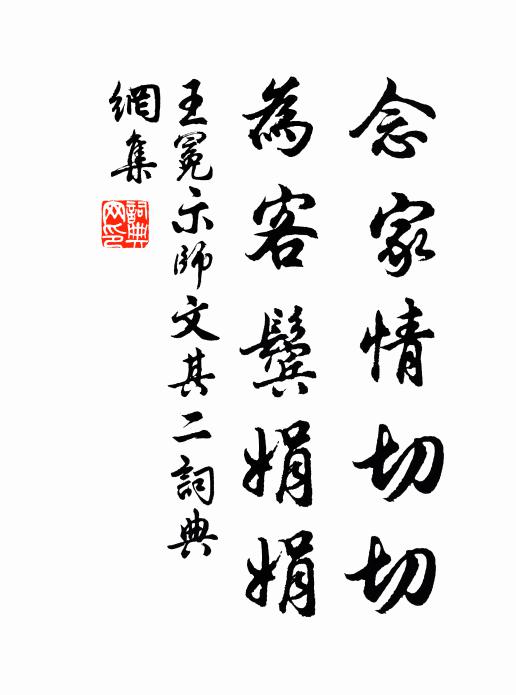 念家情切切
為客鬢娟娟
王冕示師文其二詞典
網集
詞典網印